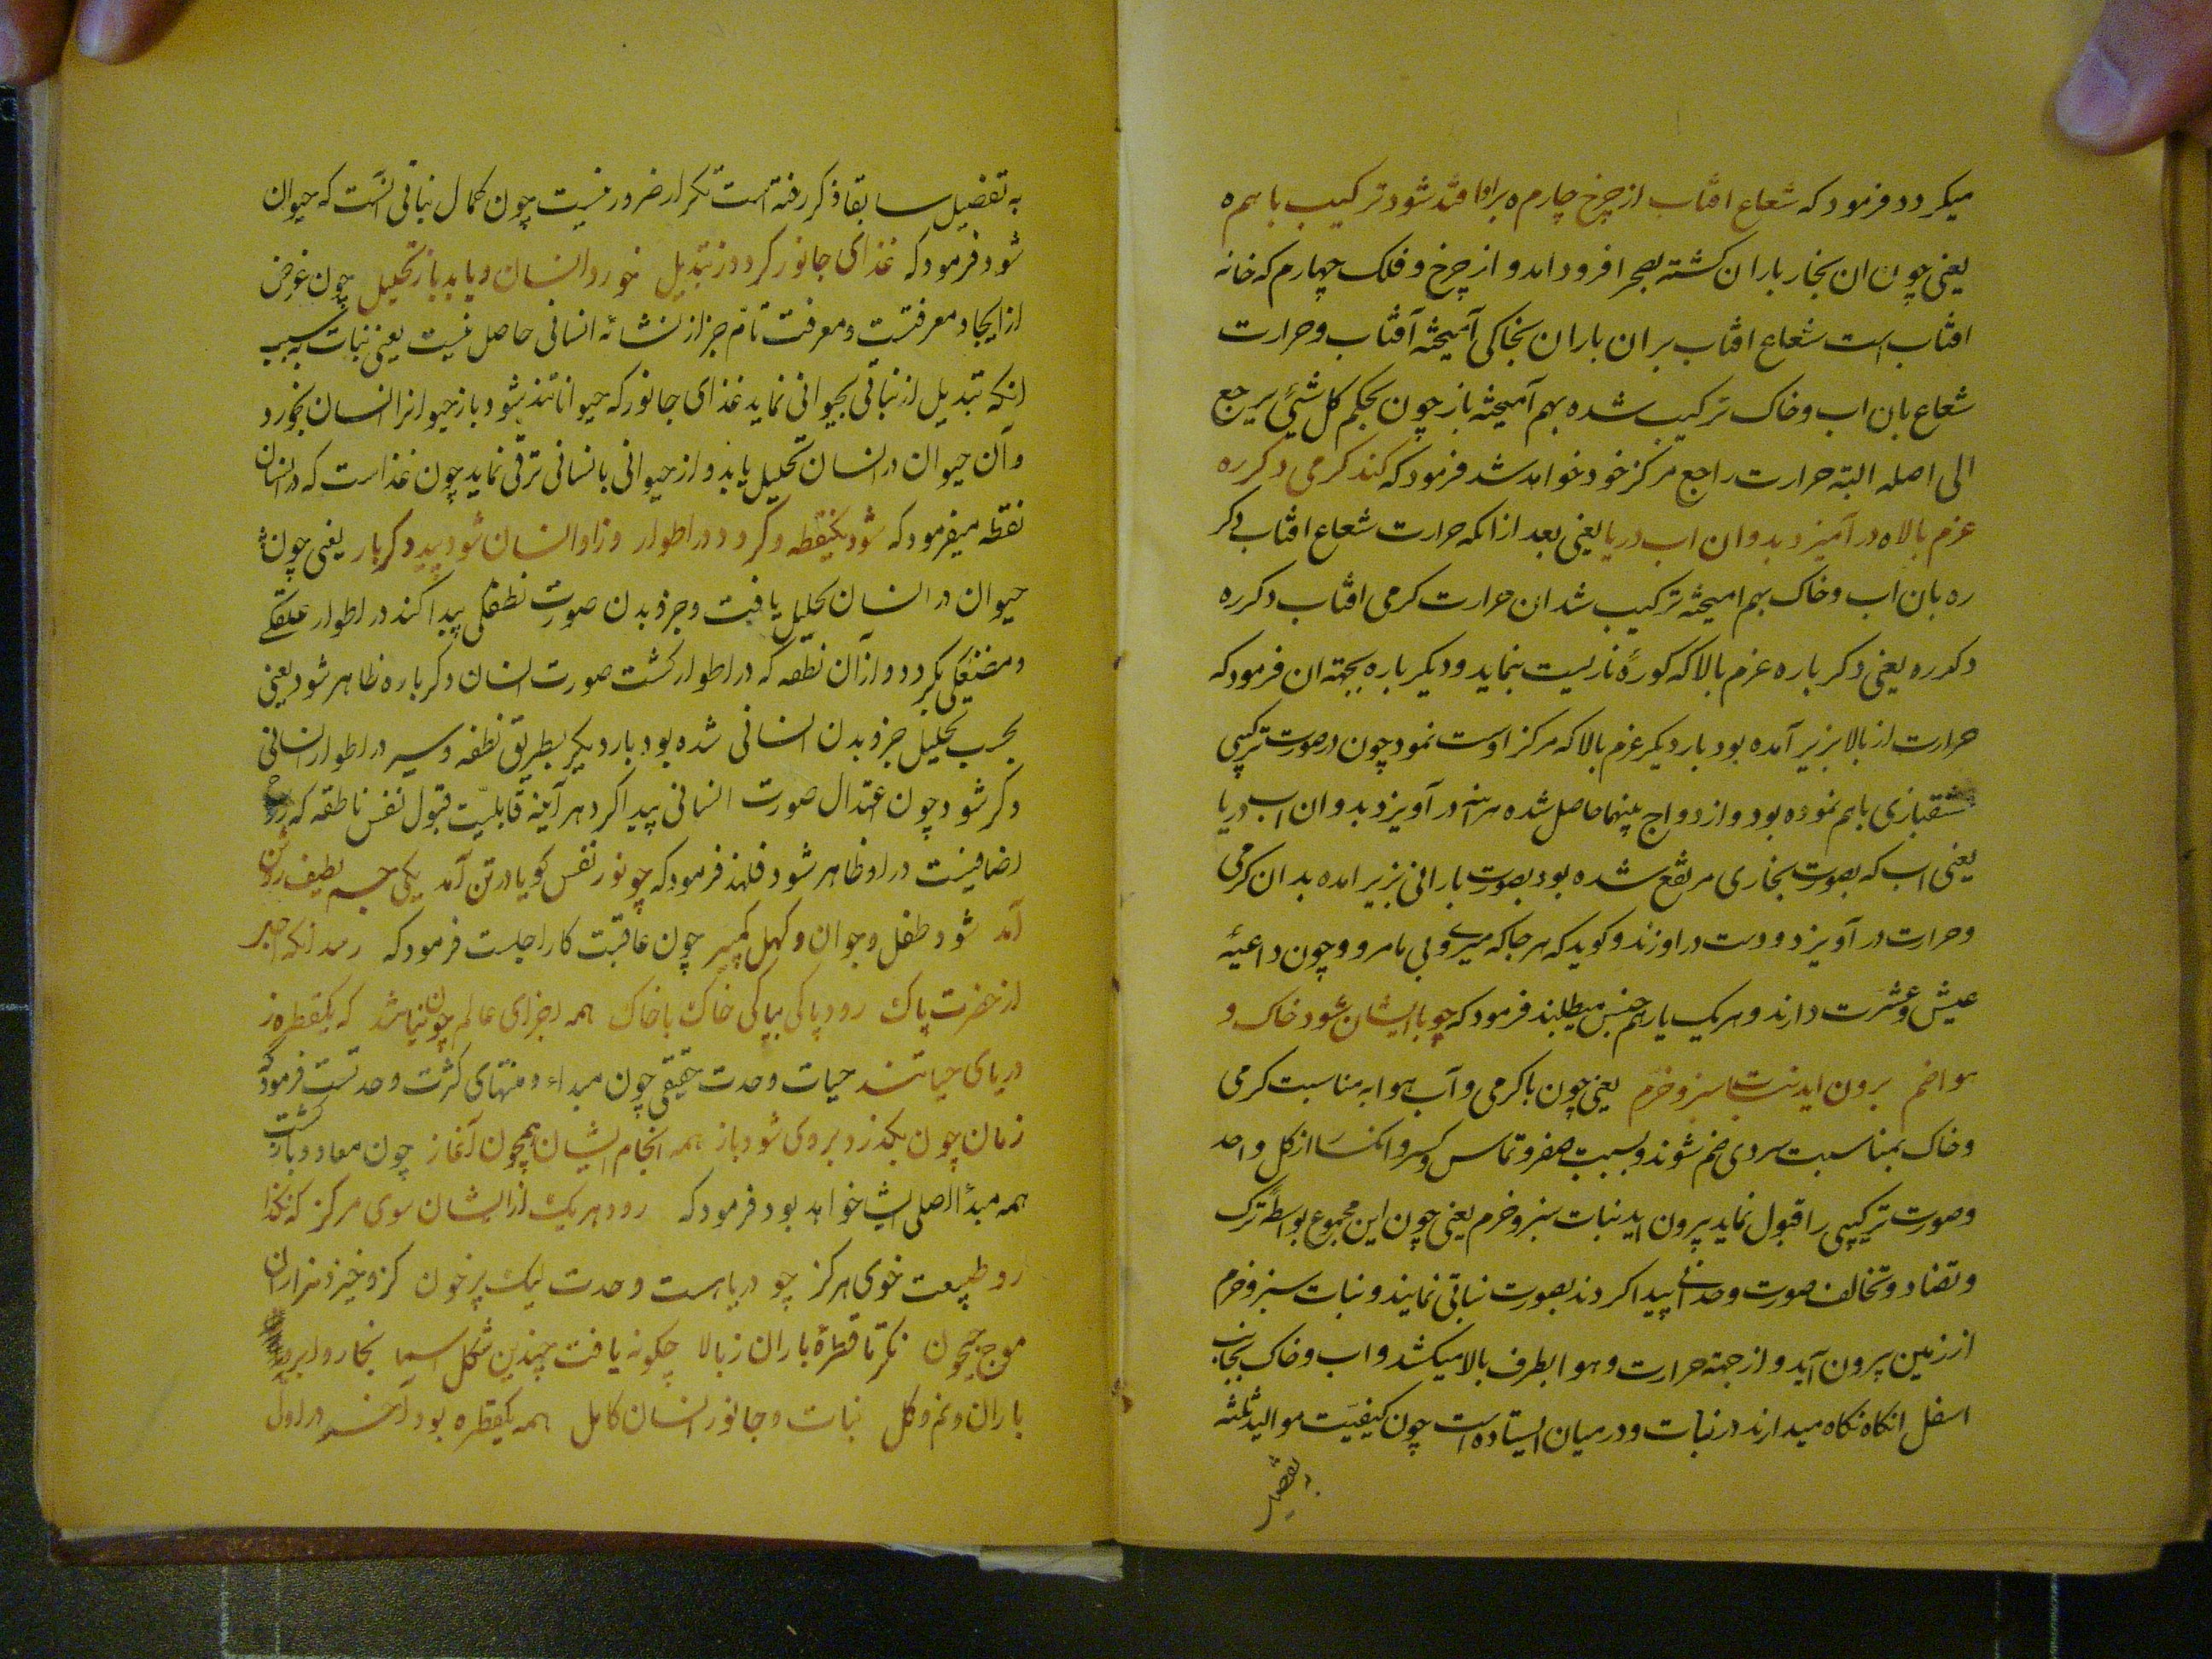 میکردد فرمود که شعاع افتاب از چرخ چارم ه برافتد شود ترکیب با هم ه
یعنی چون ان بخار باران کشته بصحرا فرود امد و از چرخ و فلک چهارم که خانه
افتاب است شعاع افتاب بران باران بخاکی آمیخته آفتاب و حرارت
شعاع بان اب و خاک ترکیب شده بهم آمیخته باز چون بحکم کل شئی یرجع
الی اصله البته حرارت راجع مرکز خود خواهد شد فرمود که کند کرمی دکر ره
عزم بالا ه در آمیزد بدو ان اب دریا یعنی بعد از انکه حرارت شعاع افتاب دکر
ره بان اب و خاک بهم امیخته ترکیب شد ان حرارت کرمی افتاب دکر ره
دکر ره یعنی دکر باره عزم بالا که کورهٔ ناریست بنماید و دیکر باره بجهته ان فرمود که
حرارت از بالا بزیر آمده بود بار دیکر عزم بالا که مرکز اوست نمود چون در صورت ترکیبی
عشقبازی باهم نموده بود و ازدواج بینهما حاصل شده هر آینه در آویزد بدو ان اب دریا
یعنی اب که بصورت بخاری مرتفع شده بود بصورت بارانی بزیر امده بدان کرمی
و حرارت در آویزد و دست در او زند و کوید که هر جا که میروی بی ما مرو و چون داعیهٔ
عیش و عشرت دارند و هر یک یار هم جنس میطلبند فرمود که چو با ایشان شود خاک و
هوا ضم برون اید نبات سبز و خرم یعنی چون با کرمی و آب هوا به مناسبت کرمی
و خاک بمناسبت سردی ضم شوند و بسبب صغر و تماس و کسر و انکسار از کل واحد
و صورت ترکیبی را قبول نماید بیرون اید نبات سبز و خرم یعنی چون این مجموع بواسطهٔ ترک
و تضاد و تخالف صورت وحدانی پیدا کردند بصورت نباتی نمایند و نبات سبز و خرم
از زمین بیرون آید و از جهته حرارت و هوا بطرف بالا میکشد و اب و خاک بجانب
اسفل انکاه نکاه میدارند در نبات و در میان ایستاده است چون کیفیّت موالید ثلثه
به تفصیل
به تفضیل سابقا ذکر رفته است تکرار ضرور نیست چون کمال نباتی آنست که حیوان
شود فرمود که غذای جانور کردد ز تبدیل خورد انسان و یابد باز تحلیل چون غرض
از ایجاد معرفتست و معرفت تامّ جز از نشائه انسانی حاصل نیست یعنی نبات به سبب
انکه تبدیل از نباتی بحیوانی نماید غذای جانور که حیوانانند شود باز حیوانرا انسان بخورد
و آن حیوان در انسان تحلیل یابد و از حیوانی بانسانی ترقی نماید چون غذاست که در انسان
نقطه میفرمود که شود یکنقطه و کردد در اطوار وزاو انسان شود پیدا دکر بار یعنی چون
حیوان در انسان تحلیل یافت و جزو بدن صورت نطفکی پیدا کند در اطوار علقکی
و مضغکی بکردد و از آن نطفه که در اطوار کشت صورت انسان دکر باره ظاهر شود یعنی
بحسب تحلیل جزو بدن انسانی شده بود بار دیکر بطریق نطفه و سیر در اطوار انسانی
دکر شود چون اعتدال صورت انسانی پیدا کرد هر آینه قابلیّت قبول نفس ناطقه که روح
اضافیست در او ظاهر شود فلهذ فرمود که چو نور نفس کویا در تن آمد یکی جسم لطیف روشن
آمد شود طفل و جوان و کهل کمپیر چون عاقبت کار اجلست فرمود که رسد انکه اجل
از حضرت پاک رود پاکی بپاکی خاک با خاک همه اجزای عالم چون نباتند که یکقطره ز
دریای حیاتند حیات وحدت حقیقی چون مبداء و منتهای کثرت وحدتست فرمود که
زمان چون بکذرد بروی شود باز همه انجام ایشان همچون آغاز چون معاد و بازکشت
همه مبدأ اصلی ایشان خواهد بود فرمود که رود هر یک از ایشان سوی مرکز که نکذا
رد طبیعت خوی مرکز چو دریاست وحدت لیک پر خون کزو خیزد هزاران
موج جیحون نکر تا قطرهٔ باران ز بالا چکونه یافت چندین شکل اسما بخار و ابر و
باران و نم و کل نبات و جانور انسان کامل همه یکقطره بود آخر در اول